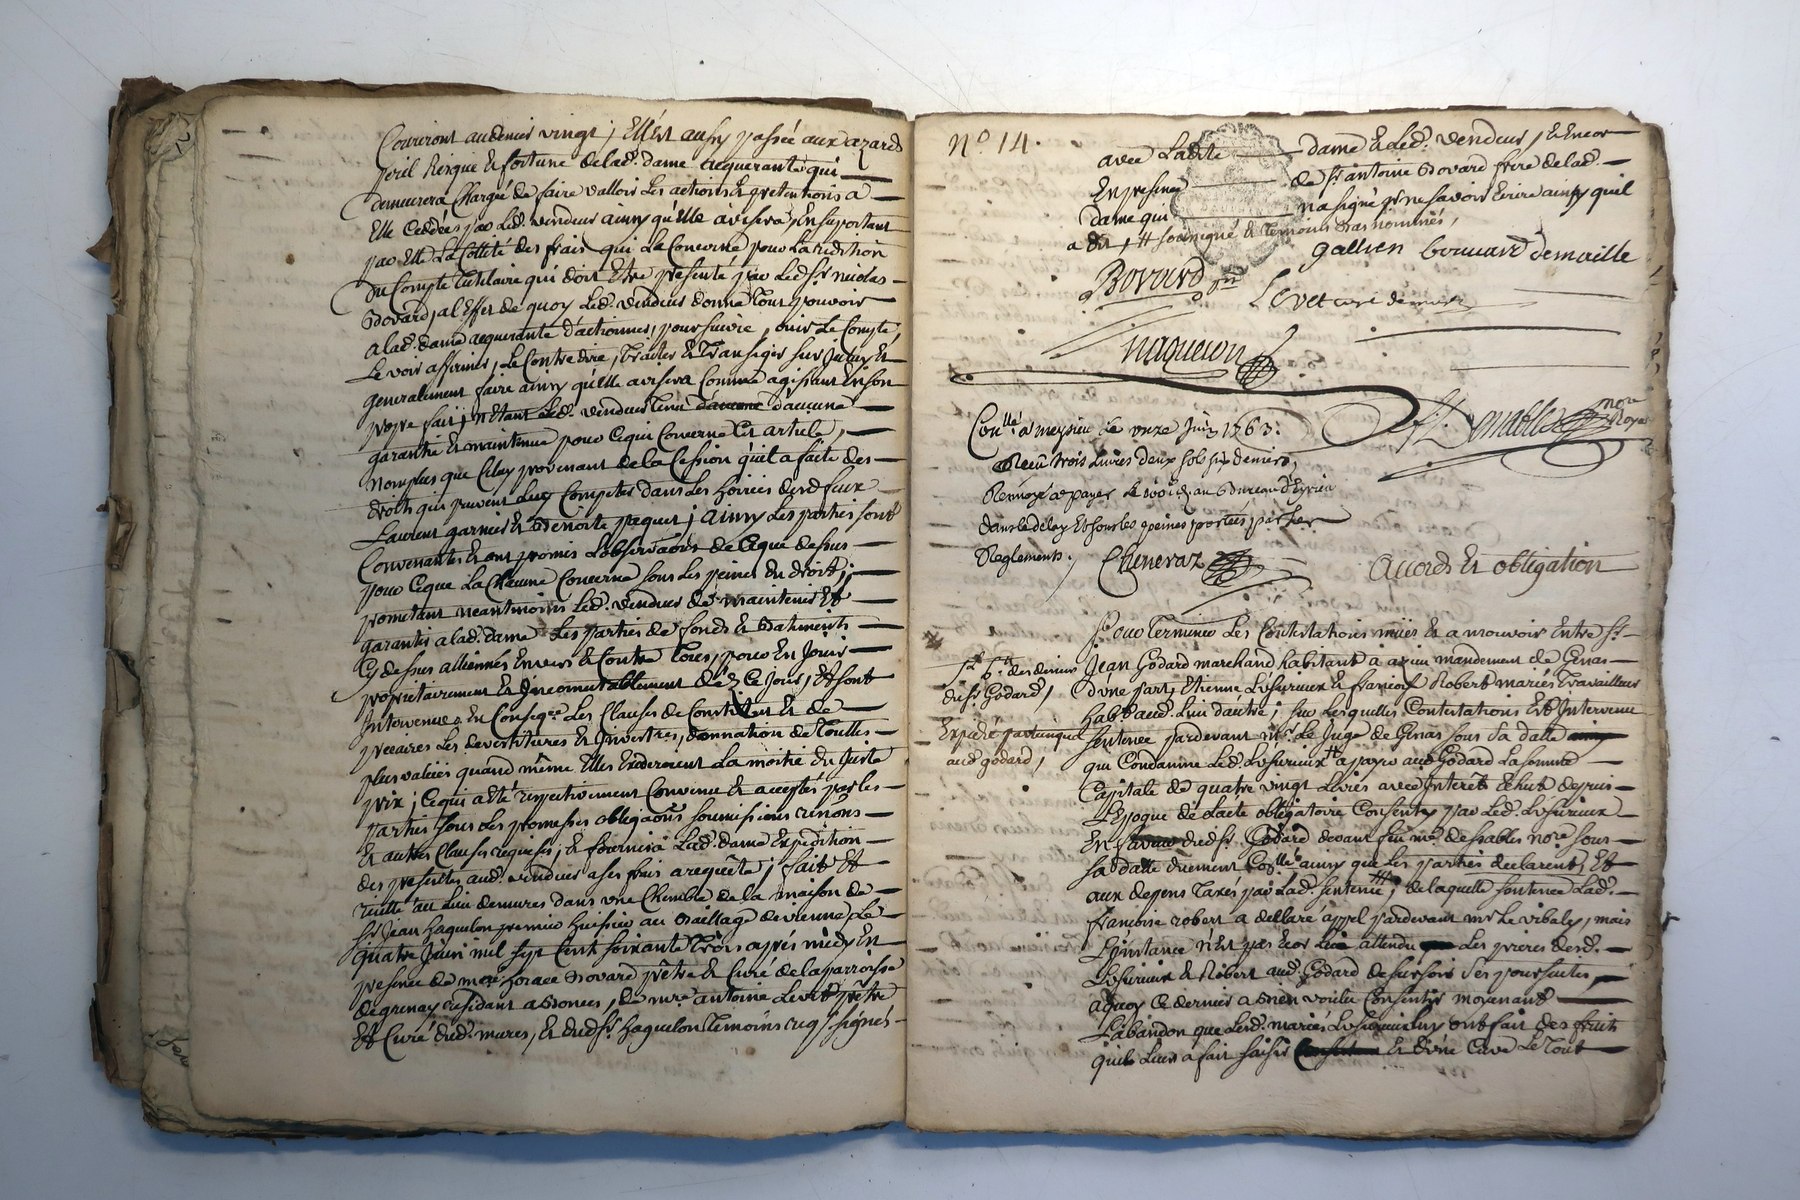 Couriront au denier vingt ; Et Est ausy passée aux azards
peril Risque Et fortune de lad. dame acquerante qui
demeurera Chargée de faire valloir Les actions Et pretentions a
Elle Ceddées par Led. vendeur ainsy qu'Elle avisera En suportant
par Elle La Cottité des frais qui La Concerne pour La reddition
du Compte tutelaire qui doit Etre presenté par Led. Sr. nicolas
Bovard, al Effet de quoy Led. vendeur donne Tout pouvoir
a lad. dame acquerante d'actionner, poursuivre, ouir Le Compte,
Le voir affirmer, Le Contredire, Traiter Et Transiger sur Iceluy Et
generalement faire ainsy qu'Elle avisera Comme agissant En son
propre fait ; n'Etant Led. vendeur Tenu d'aucune
garantie Et maintenue pour Ce qui Concerne Cet article,
nomplus que Celuy provenant de la Cession qu'il a faite des
droits qui peuvent Luy Competer dans Les hoiries desd. feux
Laurent garnier Et Benoite paquet ; ainsy Les parties sont
Convenantes Et ont promis L'observaon de Ce que dessus
pour Ce que La Chacune Concerne sous Les peines du droit ;
prometant neantmoins Led. vendeur de maintenir Et
garantir a lad. dame Les parties de fonds Et Batiments
Cy dessus alliennés Envers Et Contre Tous, pour En Jouir
proprietairement Et Incommutablement dés Ce Jour, Et sont
Intervenues En Conseqce. Les Clauses de Constitut Et de
precaires Les devestitures Et Investres, donnation de Touttes
plus valuës quand même Elles Excederoient La moitié du Juste
prix ; Ce qui a Eté respectivement Convenu Et accepté par Les
parties sous Les promesses obligaons soumissions
Et autres Clauses requises ; Et fournira Lad. dame Expedition
des presentes aud. vendeur a ses frais a requête ; fait Et
recitté au Lieu de mures dans une Chambre de la maison de
Sr. Jean haquelon premier huissier au Baillage de vienne Le
quatre Juin mil sept Cent soixante Trois après midy En
presence de mre. horace Bovard prêtre Et Curé de la parroisse
de grenay residant a Bonces, de mre antoine Levet prêtre
Et Curé dud. mures, Et dud. Sr. haquelon Temoins req. signés
No 14.
avec Ladite dame Et Led. vendeur, Et Encor
En presence de Sr. antoine Bovard frere de lad.
dame qui n'a signé pr. ne savoir Ecrire ainsy quil
a dit, # soussigné Et Temoins Bas nommés,
gallien bouvard demaille
Bovard
Levet curé de mures
naquelon
Conllé. a meysieu Le onze Juin 1763.
Receu trois Livres deux sols six deniers,
Renvoyé a payer Le au Bureau d'Eyrieu
dans le delay Et sous les peines portées par Les
Reglements. Chenevaz
nore Royal
Accords Et obligation
Pour Terminer Les Contestations mües Et a mouvoir Entre Sr.
Jean Godard marchand habitant à mandement de Genas
d'une part, Etienne Et françoise Robert mariés Travailleurs
habts aud. Lieu d'autre ; sur Lesquelles Contestations Est Intervenu
sentence pardevant mr. Le Juge de Genas sous sa datte
qui Condamne Led. # a payer aud. Godard La somme
Capitale de quatre vingt Livres avec Interêt Echut depuis
L'Epoque de L'acte obligatoire Consenty par Led.
En faveur dud. Sr. Godard devant feu me. desables nore. sous
sa datte duement Conllé. ainsy que Les parties declarent, Et
aux depens Taxés par Lad. sentence ; de laquelle sentence Lad.
françoise robert a declaré appel pardevant mr Le vibally, mais
L'Instance n'Est pas Encor attendu Les prieres desd.
Et Robert aud. Godard de sursoir ses poursuites,
a quoy Ce dernier a Bien voulu Consentir moyenant
L'abandon que Lesd. mariés ont fait des fruits
quil Leurs a fait saisir Et d'une Cuve Le Tout
des deniers
dud. Sr. Godard,
Expedié par
aud. godard,